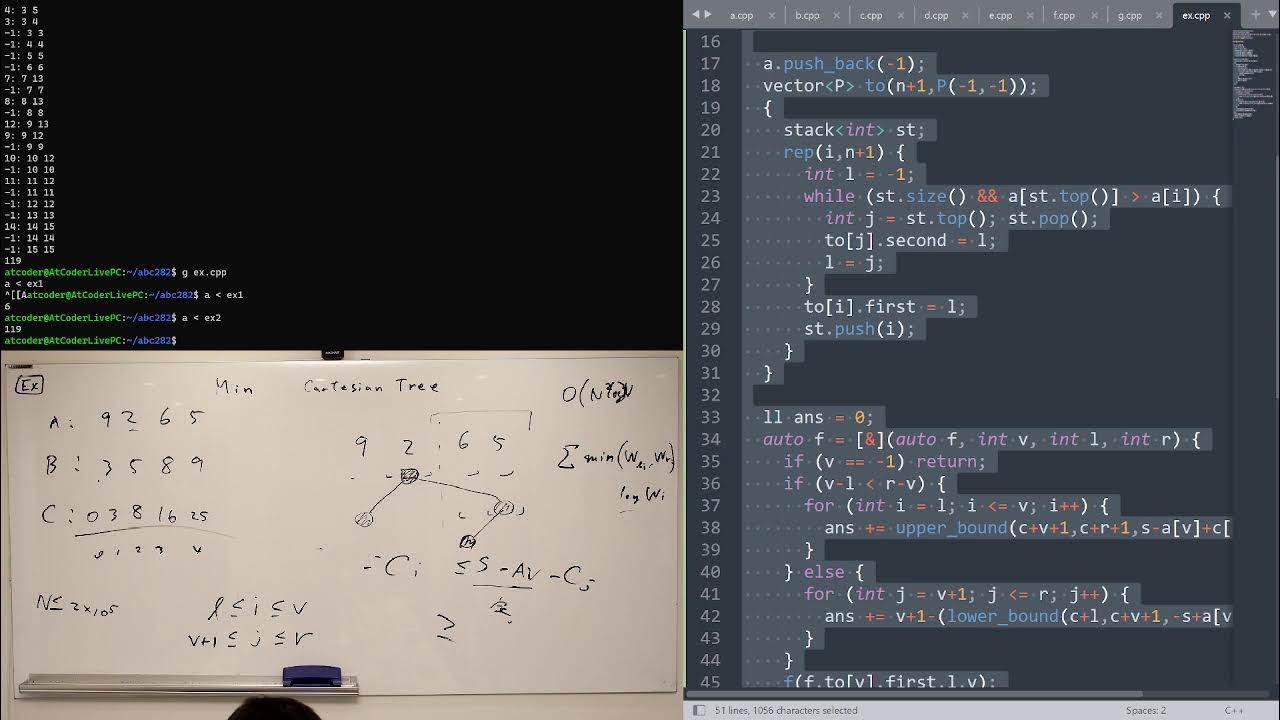 4: 3 5
3: 3 4
-1: 3 3
-1: 4 4
-1: 5 5
-1: 6 6
7: 7 13
-1: 7 7
8: 8 13
-1: 8 8
12: 9 13
9: 9 12
-1: 9 9
10: 10 12
-1: 10 10
11: 11 12
-1: 11 11
-1: 12 12
-1: 13 13
14: 14 15
-1: 14 14
-1: 15 15
119
atcoder@AtCoderLivePC:~/abc282$ g ex.cpp
a < ex1
^[[Aatcoder@AtCoderLivePC:~/abc282$ a < ex1
6
atcoder@AtCoderLivePC:~/abc282$ a < ex2
119
atcoder@AtCoderLivePC:~/abc282$
Ex Min Cartesian Tree
A: 9 2 6 5
B: 3 5 8 9
C: 0 3 8 16 25
0 1 2 3 4
N ≤ 2×10^5
l ≤ i ≤ v
v+1 ≤ j ≤ r
9 2 6 5
-Ci ≤ S - Av - Cj
≥
log Wi
a.cpp b.cpp c.cpp d.cpp e.cpp f.cpp g.cpp ex.cpp
16
17 a.push_back(-1);
18 vector<P> to(n+1,P(-1,-1));
19 {
20 stack<int> st;
21 rep(i,n+1) {
22 int l = -1;
23 while (st.size() && a[st.top()] > a[i]) {
24 int j = st.top(); st.pop();
25 to[j].second = l;
26 l = j;
27 }
28 to[i].first = l;
29 st.push(i);
30 }
31 }
32
33 ll ans = 0;
34 auto f = [&](auto f, int v, int l, int r) {
35 if (v == -1) return;
36 if (v-l < r-v) {
37 for (int i = l; i <= v; i++) {
38 ans += upper_bound(c+v+1,c+r+1,s-a[v]+c[
39 }
40 } else {
41 for (int j = v+1; j <= r; j++) {
42 ans += v+1-(lower_bound(c+l,c+v+1,-s+a[v
43 }
44 }
45 f(f,to[v].first,l,v);
51 lines, 1056 characters selected Spaces: 2 C++